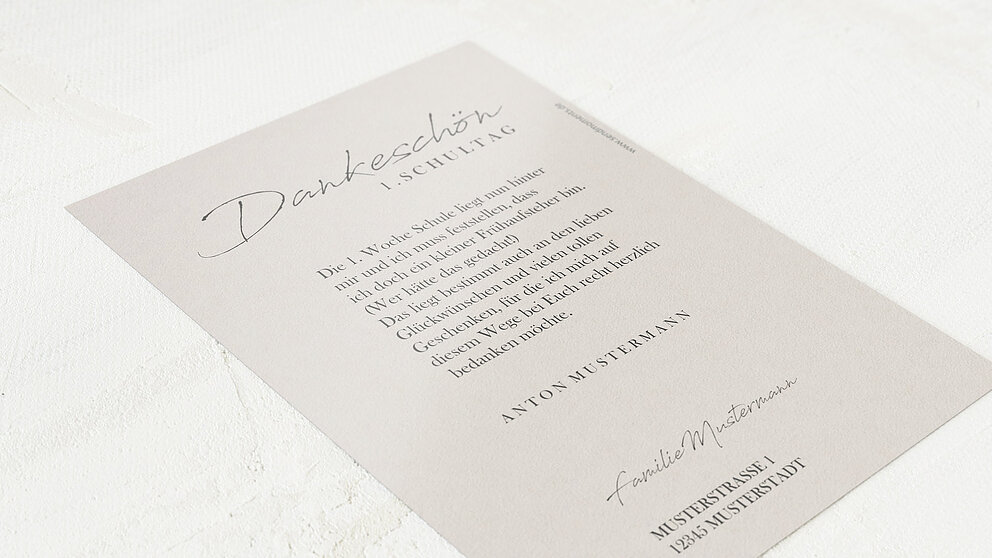 Dankeschön
1. SCHULTAG
Die 1. Woche Schule liegt nun hinter
mir und ich muss feststellen, dass
ich doch ein kleiner Frühaufsteher bin.
(Wer hätte das gedacht!)
Das liegt bestimmt auch an den lieben
Glückwünschen und vielen tollen
Geschenken, für die ich mich auf
diesem Wege bei Euch recht herzlich
bedanken möchte.
ANTON MUSTERMANN
Familie Mustermann
MUSTERSTRASSE 1
12345 MUSTERSTADT
www.sendmoments.de